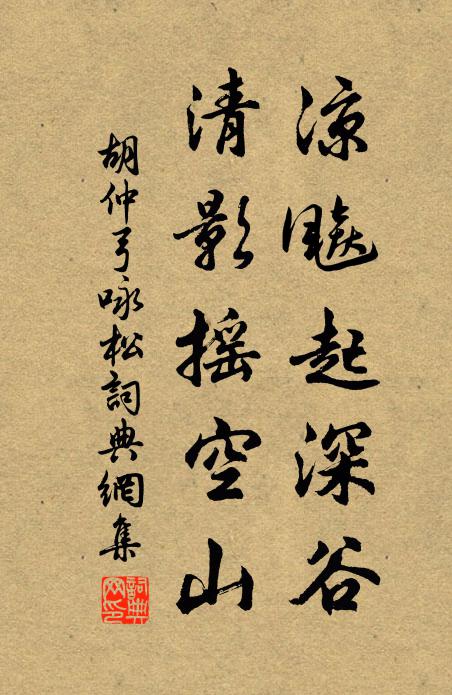 凉飈起深谷
清影摇空山
胡仲弓咏松詞典網集
詞典网印